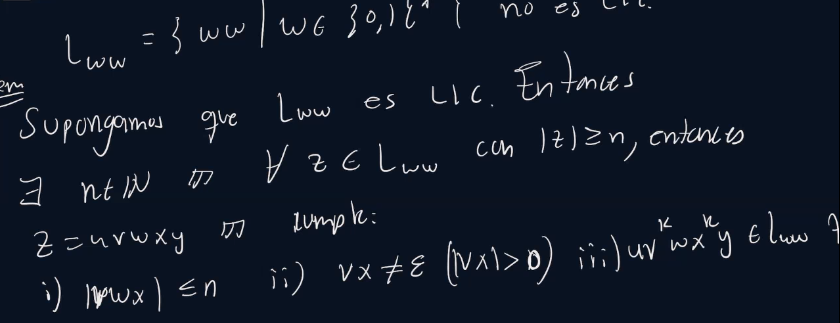 L_ww = { ww | w ∈ {0,1}* } no es LIC.
em
Supongamos que Lww es LIC. Entonces
∃ n∈ℕ ∀ z ∈ Lww con |z| ≥ n, entonces
z = uvwxy cumple:
i) |vwx| ≤ n ii) vx ≠ ε (|vx| > 0) iii) uv^k wx^k y ∈ Lww